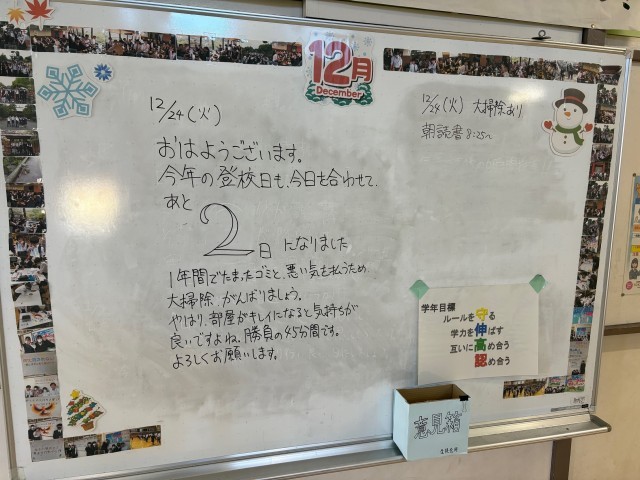 12月
December
12/24(火)
おはようございます。
今年の登校日も、今日を合わせて、
あと
2日になりました
1年間でたまったゴミと、悪い気を払うため
大掃除、がんばりましょう。
やはり、部屋がキレイになると気持ちが
良いですよね。勝負の45分間です。
よろしくお願いします。
12/24(火) 大掃除あり
朝読書 8:25~
学年目標
ルールを守る
学力を伸ばす
互いに高め合う
認め合う
意見箱